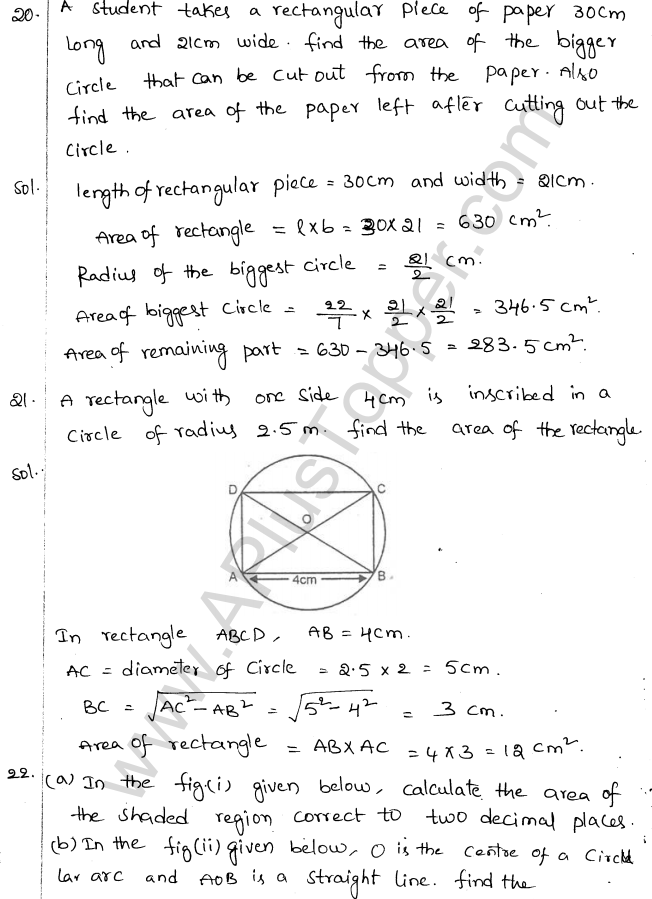 20. A student takes a rectangular piece of paper 30cm
long and 21cm wide. find the area of the bigger
circle that can be cut out from the paper. Also
find the area of the paper left after cutting out the
circle.
Sol. length of rectangular piece = 30cm and width = 21cm.
Area of rectangle = l×b = 30×21 = 630 cm².
Radius of the biggest circle = 21/2 cm.
Area of biggest circle = 22/7 × 21/2 × 21/2 = 346.5 cm².
Area of remaining part = 630 - 346.5 = 283.5 cm².
21. A rectangle with one side 4cm is inscribed in a
circle of radius 2.5 m. find the area of the rectangle
Sol.
D C
O
A 4cm B
In rectangle ABCD, AB = 4cm.
AC = diameter of circle = 2.5 × 2 = 5cm.
BC = √AC² - AB² = √5² - 4² = 3 cm.
Area of rectangle = AB×AC = 4×3 = 12 cm².
22. (a) In the fig.(i) given below, calculate the area of
the shaded region correct to two decimal places.
(b) In the fig(ii) given below, O is the centre of a Circu
lar arc and AOB is a straight line. find the
www.APlusTopper.com